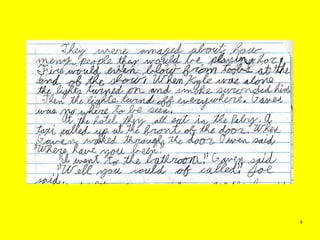 They were amazed about how
many people they would be playing for.
Fire would even blow from tools at the
end of the show. When Kyle was alone
the lights turned on and smoke suronded him.
Then the lights turnd off everywhere. Gaven
was no where to be seen.
At the hotel they all eat in the
taxi pulled up at the front of the door. When
Gaven walked through the door Owen said
"Where have you been."
"I went to the bathroom!" Gaven said
"Well you could of called." Joe
said